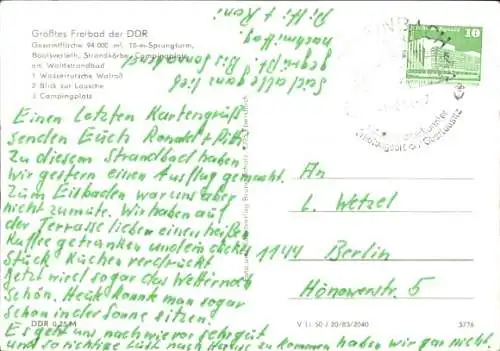 Größtes Freibad der DDR
Gesamtfläche 94 000 m², 10-m-Sprungturm,
Bootsverleih, Strandkörbe, Campingplatz
am Waldstrandbad
1 Wasserrutsche Walroß
2 Blick zur Lausche
3 Campingplatz
Einen Letzten Kartengruß
senden Euch Ronald + Pitti.
Zu diesem Strandbad haben
wir gestern einen Ausflug gemacht.
Zum Eisbaden war uns aber
nicht zumute. Wir haben auf
der Terrasse lieber einen heißen
Kaffee getrunken und ein dickes
Stück Kuchen verdrückt
Jetzt wird sogar das Wetter noch
schön. Heut konnte man sogar
schon in der Sonne sitzen.
Es geht uns nach wie vor sehr gut
und so richtige Lust nach Hause zu kommen haben wir gar nicht.
Seid alle ganz lieb
gegrüßt. Bis Sonnabend
nachmittag
Pitti + Roni
DDR
10
An
L. Wetzel
1144 Berlin
Hönowerstr. 5
DDR 0,25 M
V 11 50 / 20/83/2040
3776